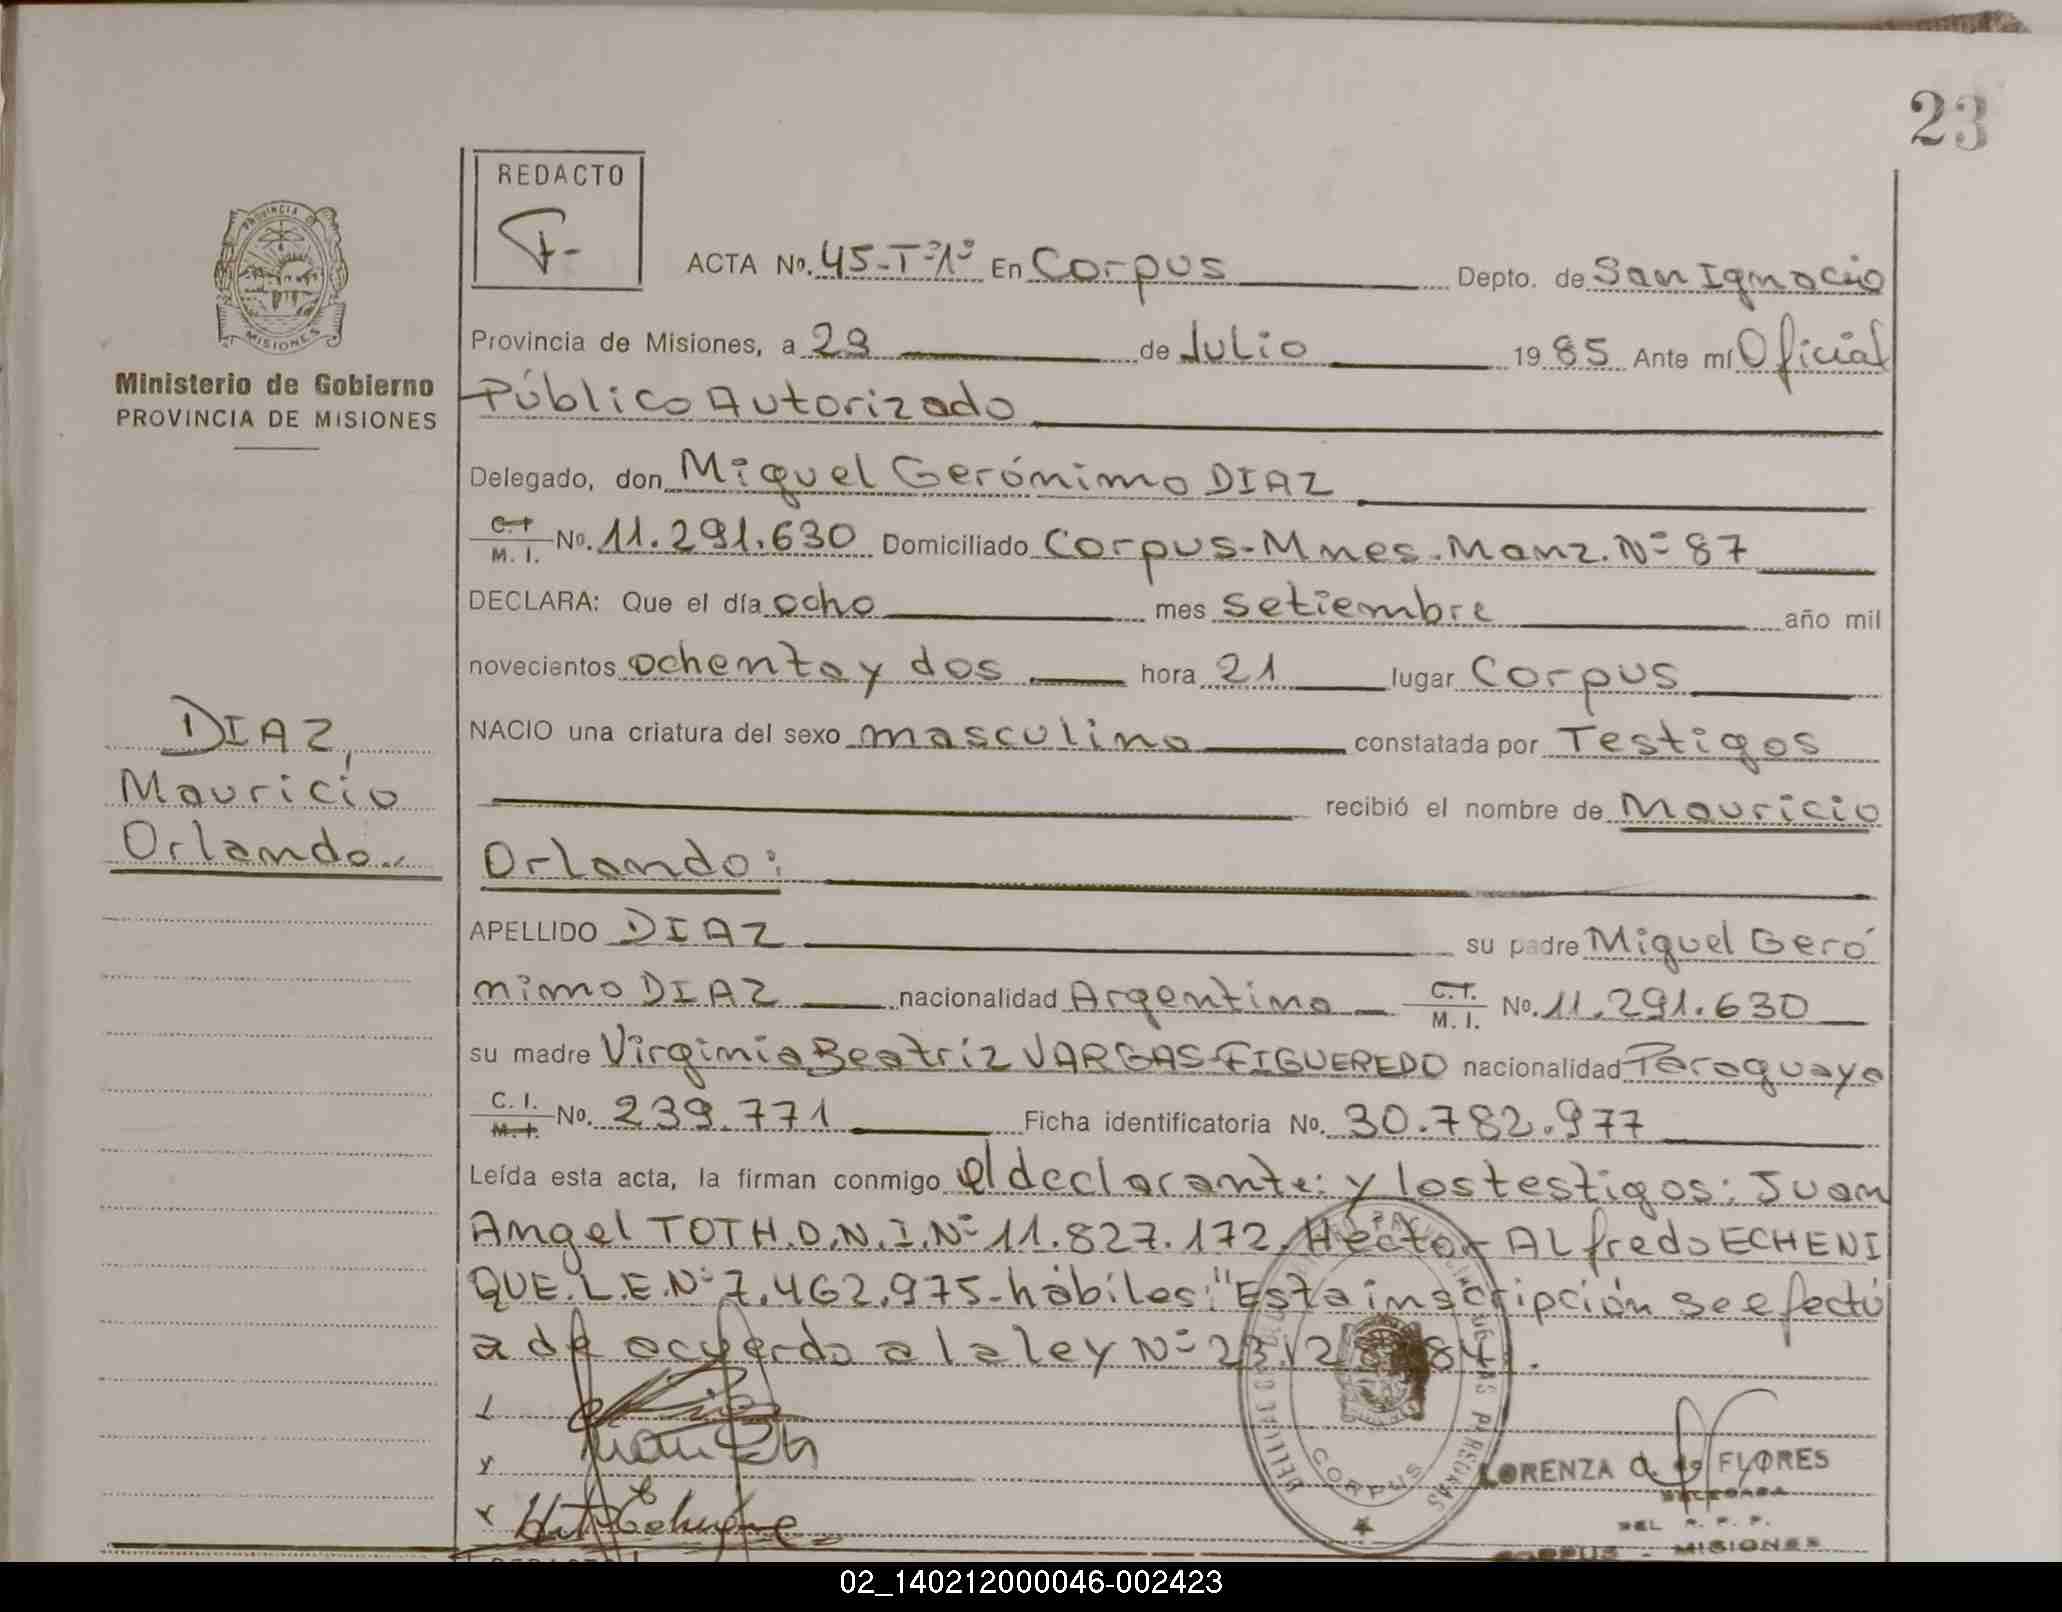 23
REDACTO
PROVINCIA DE
MISIONES
Ministerio de Gobierno
PROVINCIA DE MISIONES
ACTA No. 45-Tº1º En Corpus Depto. de San Ignacio
Provincia de Misiones, a 29 de Julio 1985 Ante mí Oficial
Público Autorizado
Delegado, don Miguel Gerónimo DIAZ
C.I. M. I. No. 11.291.630 Domiciliado Corpus-Mnes.Manz.Nº 87
DECLARA: Que el día ocho mes setiembre año mil
novecientos ochenta y dos hora 21 lugar Corpus
NACIO una criatura del sexo masculino constatada por Testigos
recibió el nombre de Mauricio
Orlando:
DIAZ,
Mauricio
Orlando.
APELLIDO DIAZ su padre Miguel Geró
nimo DIAZ nacionalidad Argentina C.I. M. I. No. 11.291.630
su madre Virginia Beatríz VARGAS FIGUEREDO nacionalidad Paraguaya
C. I. M.I. No. 239.771 Ficha identificatoria No. 30.782.977
Leída esta acta, la firman conmigo el declarante: y los testigos: Juan
Angel TOTH.D.N.I.Nº 11.827.172. Héctor Alfredo ECHENI
QUE.L.E.Nº 7.462.975-hábiles:"Esta inscripción se efectú
a de acuerdo a la ley Nº 23.12 84".
CORPUS
LORENZA d. de FLORES
DELEGADA
DEL R. P. P.
CORPUS - MISIONES
02_140212000046-002423